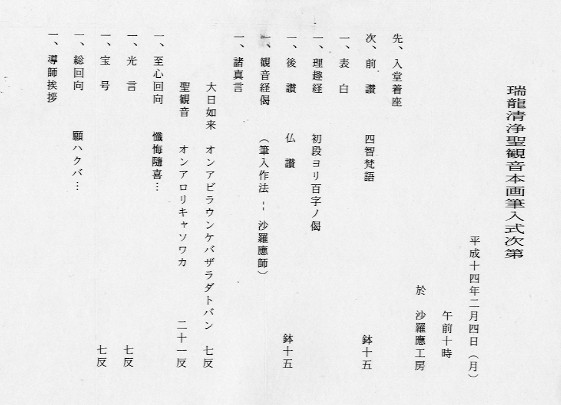 瑞龍清浄聖観音本画筆入式次第
平成十四年二月四日（月）
午前十時
於　沙羅應工房
先、入堂着座
次、前　讃　四智梵語　鉢十五
一、表　白
一、理趣経　初段ヨリ百字ノ偈
一、後　讃　仏　讃　鉢十五
一、観音経偈　（筆入作法 -- 沙羅應師）
一、諸真言
大日如来　オンアビラウンケバザラダトバン　七反
聖観音　オンアロリキャソワカ　二十一反
一、至心回向　懺悔隨喜…
一、光　言　七反
一、宝　号　七反
一、総回向　願ハクバ…
一、導師挨拶